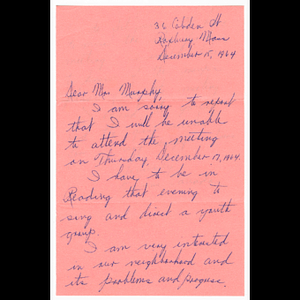 36 Cobden St
Roxbury Mass
December 15, 1964
Dear Mrs Murphy,
I am sorry to report
that I will be unable
to attend the meeting
on Thursday, December 17, 1964.
I have to be in
Reading that evening to
sing and direct a youth
group.
I am very interested
in our neighborhood and
its problems and progress.